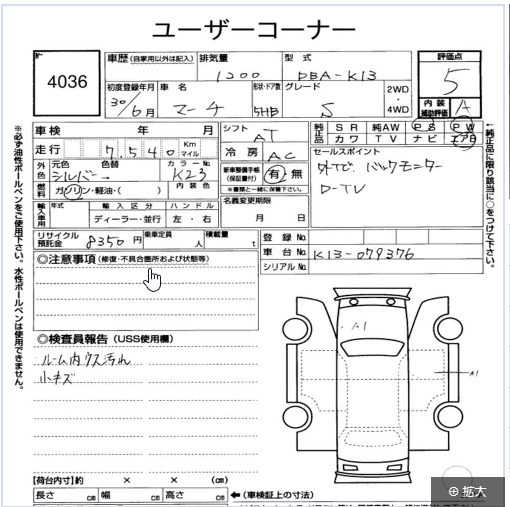 ユーザーコーナー
4036
車歴(自家用以外は記入) 排気量 型式 評価点
1200 DBA-K13 5
初度登録年月 車名 形状・ドア数 グレード 2WD・4WD 内装補助評価 A
30/6月 マーチ 5HB S
車検 年 月 シフト AT 純正品 SR 純AW PS PW
走行 7,540 Km マイル 冷房 AC カワ TV ナビ エアB
外色 元色 色替 カラーNo. セールスポイント
シルバー K23 新車整備手帳(保証書付) 有・無
※書類と一緒に保管下さい。
バックモニター
D-TV
燃料 ガソリン・軽油・( ) 内装色
名義変更期限
月 日
輸入車用 年式 輸入区分 ハンドル
ディーラー・並行 左・右
リサイクル預託金 8350円 乗車定員 人 積載量 t
登録No.
車台No. K13-079376
シリアルNo.
◎注意事項(修復・不具合箇所および状態等)
◎検査員報告(USS使用欄)
ルーム内クス汚れ
小キズ
A1
A1
【荷台内寸】約 × × (cm)
長さ cm 幅 cm 高さ cm ←(車検証上の寸法)
※必ず油性ボールペンをご使用下さい。水性ボールペンは使用できません。
←純正品に限り該当に○をつけて下さい。
拡大